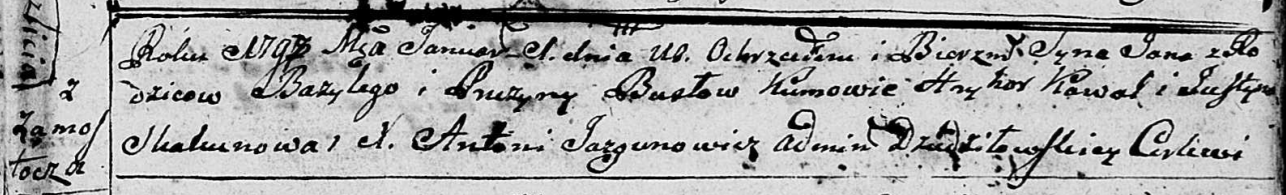 Roku 1797 Mca Januar d. dnia 10. Ochrzciłem i Bierzm Syna Jana z Ro
2 dzicow Bazylego i Pruzyny Busłow Kumowie Hryhor Kowal i Justyna
Zamos Skakunowa, X. Antoni Jazgunowicz Admin Dziedziłowskiey Cerkwi
tocza